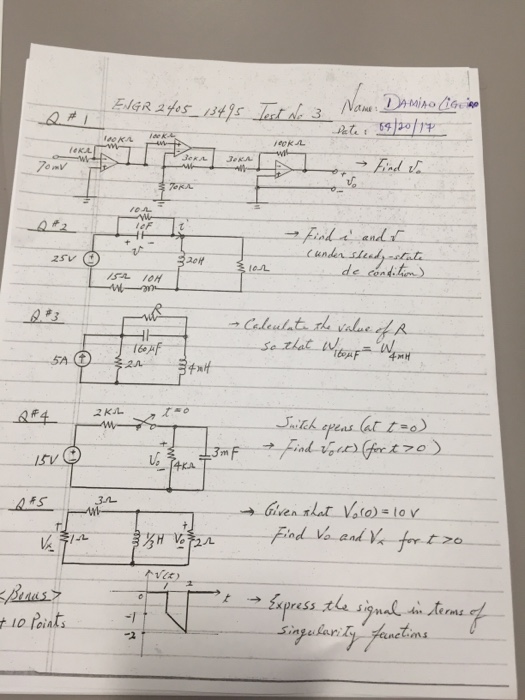 ENGR 2405_13495 Test No 3
Name: DAMIAO
Date: 04/20/17
Q.#1
10KΩ
100KΩ
100KΩ
30KΩ
30KΩ
100KΩ
70mV
70KΩ
+
Vo
-
→ Find Vo
Q#2
10Ω
10F
i
+ v -
25V
20H
10Ω
15Ω 10H
→ Find i and v
(under steady-state
dc condition)
Q.#3
R
160μF
5A
2Ω
4mH
→ Calculate the value of R
so that W160μF = W4mH
Q#4
2KΩ
t=0
15V
+
Vo
-
4KΩ
3mF
Switch opens (at t=0)
→ Find Vo(t) (for t>0)
Q#5
3Ω
+
Vx
-
1Ω
1/3H
+
Vo
-
2Ω
→ Given that Vo(0) = 10V
Find Vo and Vx for t>0
<Bonus>
+10 Points
V(t)
0
1
2
t
-1
-2
→ Express the signal in terms of
singularity functions